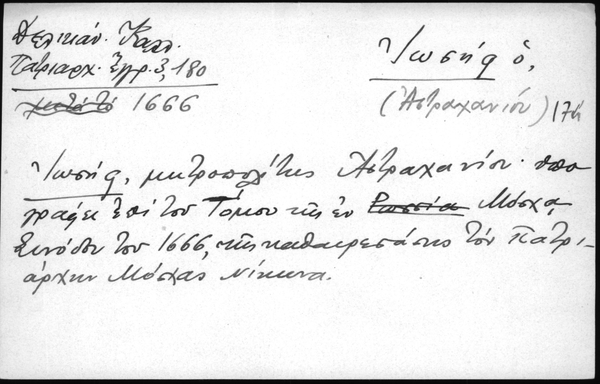 Δελικάν. Καλλ.
Πατριαρχ. Ἔγγρ. 3, 180
μετὰ τὸ 1666
Ἰωσὴφ ὁ,
(Ἀστραχανίου) 17
Ἰωσήφ, μητροπολίτης Ἀστραχανίου· ὑπο
γράφει ἐπὶ τοῦ Τόμου τῆς ἐν Ῥωσσίᾳ Μόσχᾳ
Συνόδου τοῦ 1666, τῆς καθαιρεσάσης τὸν Πατρι-
άρχην Μόσχας Νίκωνα.